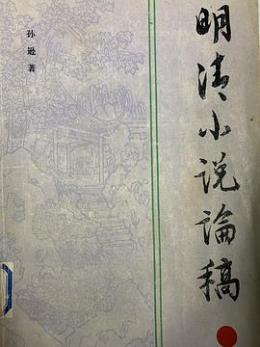 明清小说論稿
孙逊著